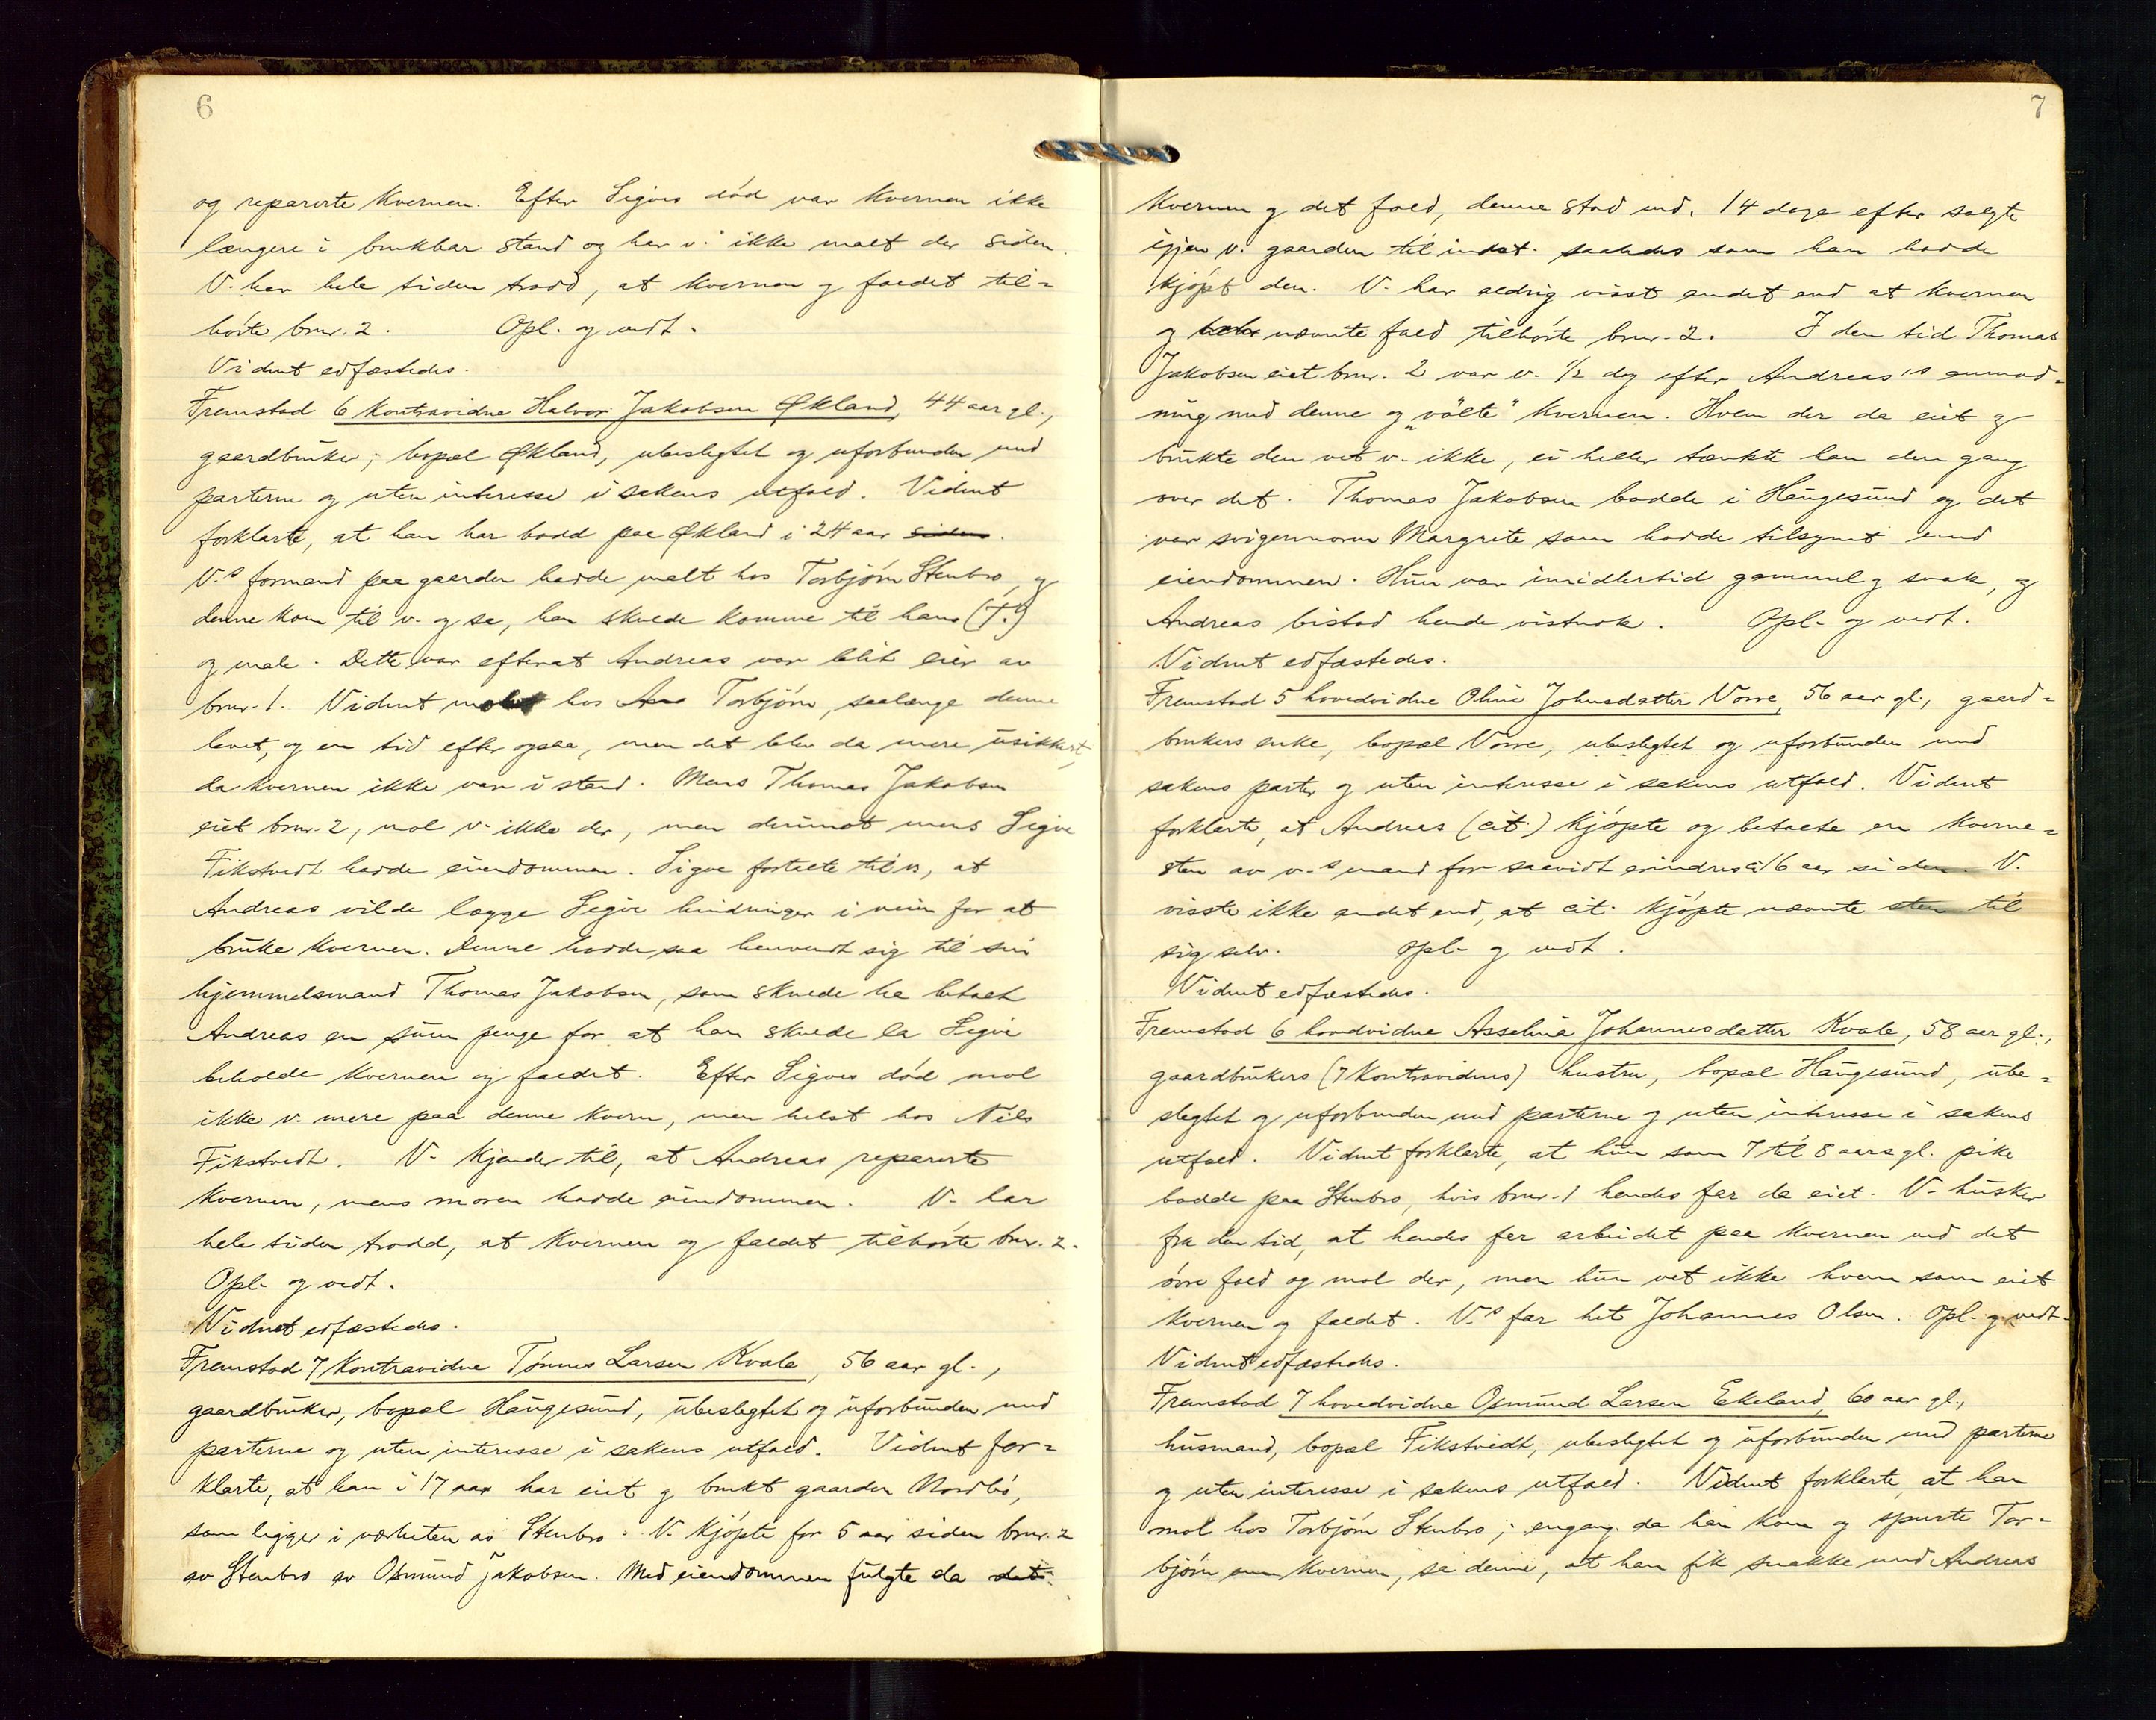 6
og reparerte kvernen. Efter Sigves död var kvernen ikke
længere i brukbar stand og har v. ikke malt der siden.
V. har hele tiden trodd, at kvernen og faldet til-
hörte brnr. 2. Opl. og vedt.
Vidnet edfæstedes.
Fremstod 6 kontravidne Halvor Jakobsen Økland, 44 aar gl.,
gaardbruker, bopæl Økland, ubeslegtet og uforbunden med
parterne og uten interesse i sakens utfald. Vidnet
forklarte, at han har bodd paa Økland i 24 aar siden.
V.s formand paa gaarden hadde malt hos Torbjörn Stenbro, og
denne kom til v. og sa, han skulde komme til ham (T.)
og male. Dette var efterat Andreas var blit eier av
brnr. 1. Vidnet molt hos And Torbjörn, saalænge denne
levet, og en tid efter ogsaa, men det blev da mere usikkert,
da kvernen ikke var i stand. Mens Thomas Jakobsen
eiet brnr. 2, mol v. ikke der, men derimot mens Sigve
Fikstvedt hadde eiendommen. Sigve fortalte til v., at
Andreas vilde lægge Sigve hindringer i veien for at
bruke kvernen. Denne hadde saa henvendt sig til sin
hjemmelsmand Thomas Jakobsen, som skulde ha betalt
Andreas en sum penge for at han skulde la Sigve
beholde kvernen og faldet. Efter Sigves död mol
ikke v. mere paa denne kvern, men helst hos Nils
Fikstvedt. V. kjender til, at Andreas reparerte
kvernen, mens moren hadde eiendommen. V. har
hele tiden trodd, at kvernen og faldet tilhörte brnr. 2.
Opl. og vedt.
Vidnet edfæstedes.
Fremstod 7 kontravidne Tönnes Larsen Kvale, 56 aar gl.,
gaardbruker, bopæl Haugesund, ubeslegtet og uforbunden med
parterne og uten interesse i sakens utfald. Vidnet for-
klarte, at han i 17 aar har eiet og brukt gaarden Nordbö,
som ligger i nærheten av Stenbro. V. kjöpte for 5 aar siden brnr. 2
av Stenbro av Osmund Jakobsen. Med eiendommen fulgte da det
7
kvernen og det fald, denne stod ved. 14 dage efter solgte
igjen v. gaarden til indst. saaledes som han hadde
kjöpt den. V. har aldrig visst andet end at kvernen
og nævnte fald tilhörte brnr. 2. I den tid Thomas
Jakobsen eiet brnr. 2 var v. 1/2 dag efter Andreas's anmod-
ning med denne og „völte" kvernen. Hvem der da eiet og
brukte den vet v. ikke, ei heller tænkte han den gang
over det. Thomas Jakobsen bodde i Haugesund og det
var svigermoren Margrete som hadde tilsynet med
eiendommen. Hun var imidlertid gammel og svak, og
Andreas bistod hende vistnok. Opl. og vedt.
Vidnet edfæstedes.
Fremstod 5 hovedvidne Oline Johnsdatter Vorre, 56 aar gl., gaard-
brukers enke, bopæl Vorre, ubeslegtet og uforbunden med
sakens parter og uten interesse i sakens utfald. Vidnet
forklarte, at Andreas (cit.) kjöpte og betalte en kverne-
sten av v.s mand for saavidt erindres ca. 16 aar siden. V.
visste ikke andet end, at cit. kjöpte nævnte sten til
sig selv. Opl. og vedt.
Vidnet edfæstedes.
Fremstod 6 hovedvidne Asselina Johannesdatter Kvale, 58 aar gl.,
gaardbrukers (7 kontravidnes) hustru, bopæl Haugesund, ube-
slegtet og uforbunden med parterne og uten interesse i sakens
utfald. Vidnet forklarte, at hun som 7 til 8 aars gl. pike
bodde paa Stenbro, hvis brnr. 1 hendes far da eiet. V. husker
fra den tid, at hendes far arbeidet paa kvernen ved det
övre fald og mol der, men hun vet ikke hvem som eiet
kvernen og faldet. V.s far het Johannes Olsen. Opl. og vedt.
Vidnet edfæstedes.
Fremstod 7 hovedvidne Osmund Larsen Ekeland, 60 aar gl.,
husmand, bopæl Fikstvedt, ubeslegtet og uforbunden med parterne
og uten interesse i sakens utfald. Vidnet forklarte, at han
mol hos Torbjörn Stenbro; engang da han kom og spurte Tor-
björn om kvernen, sa denne, at han fik snakke med Andreas